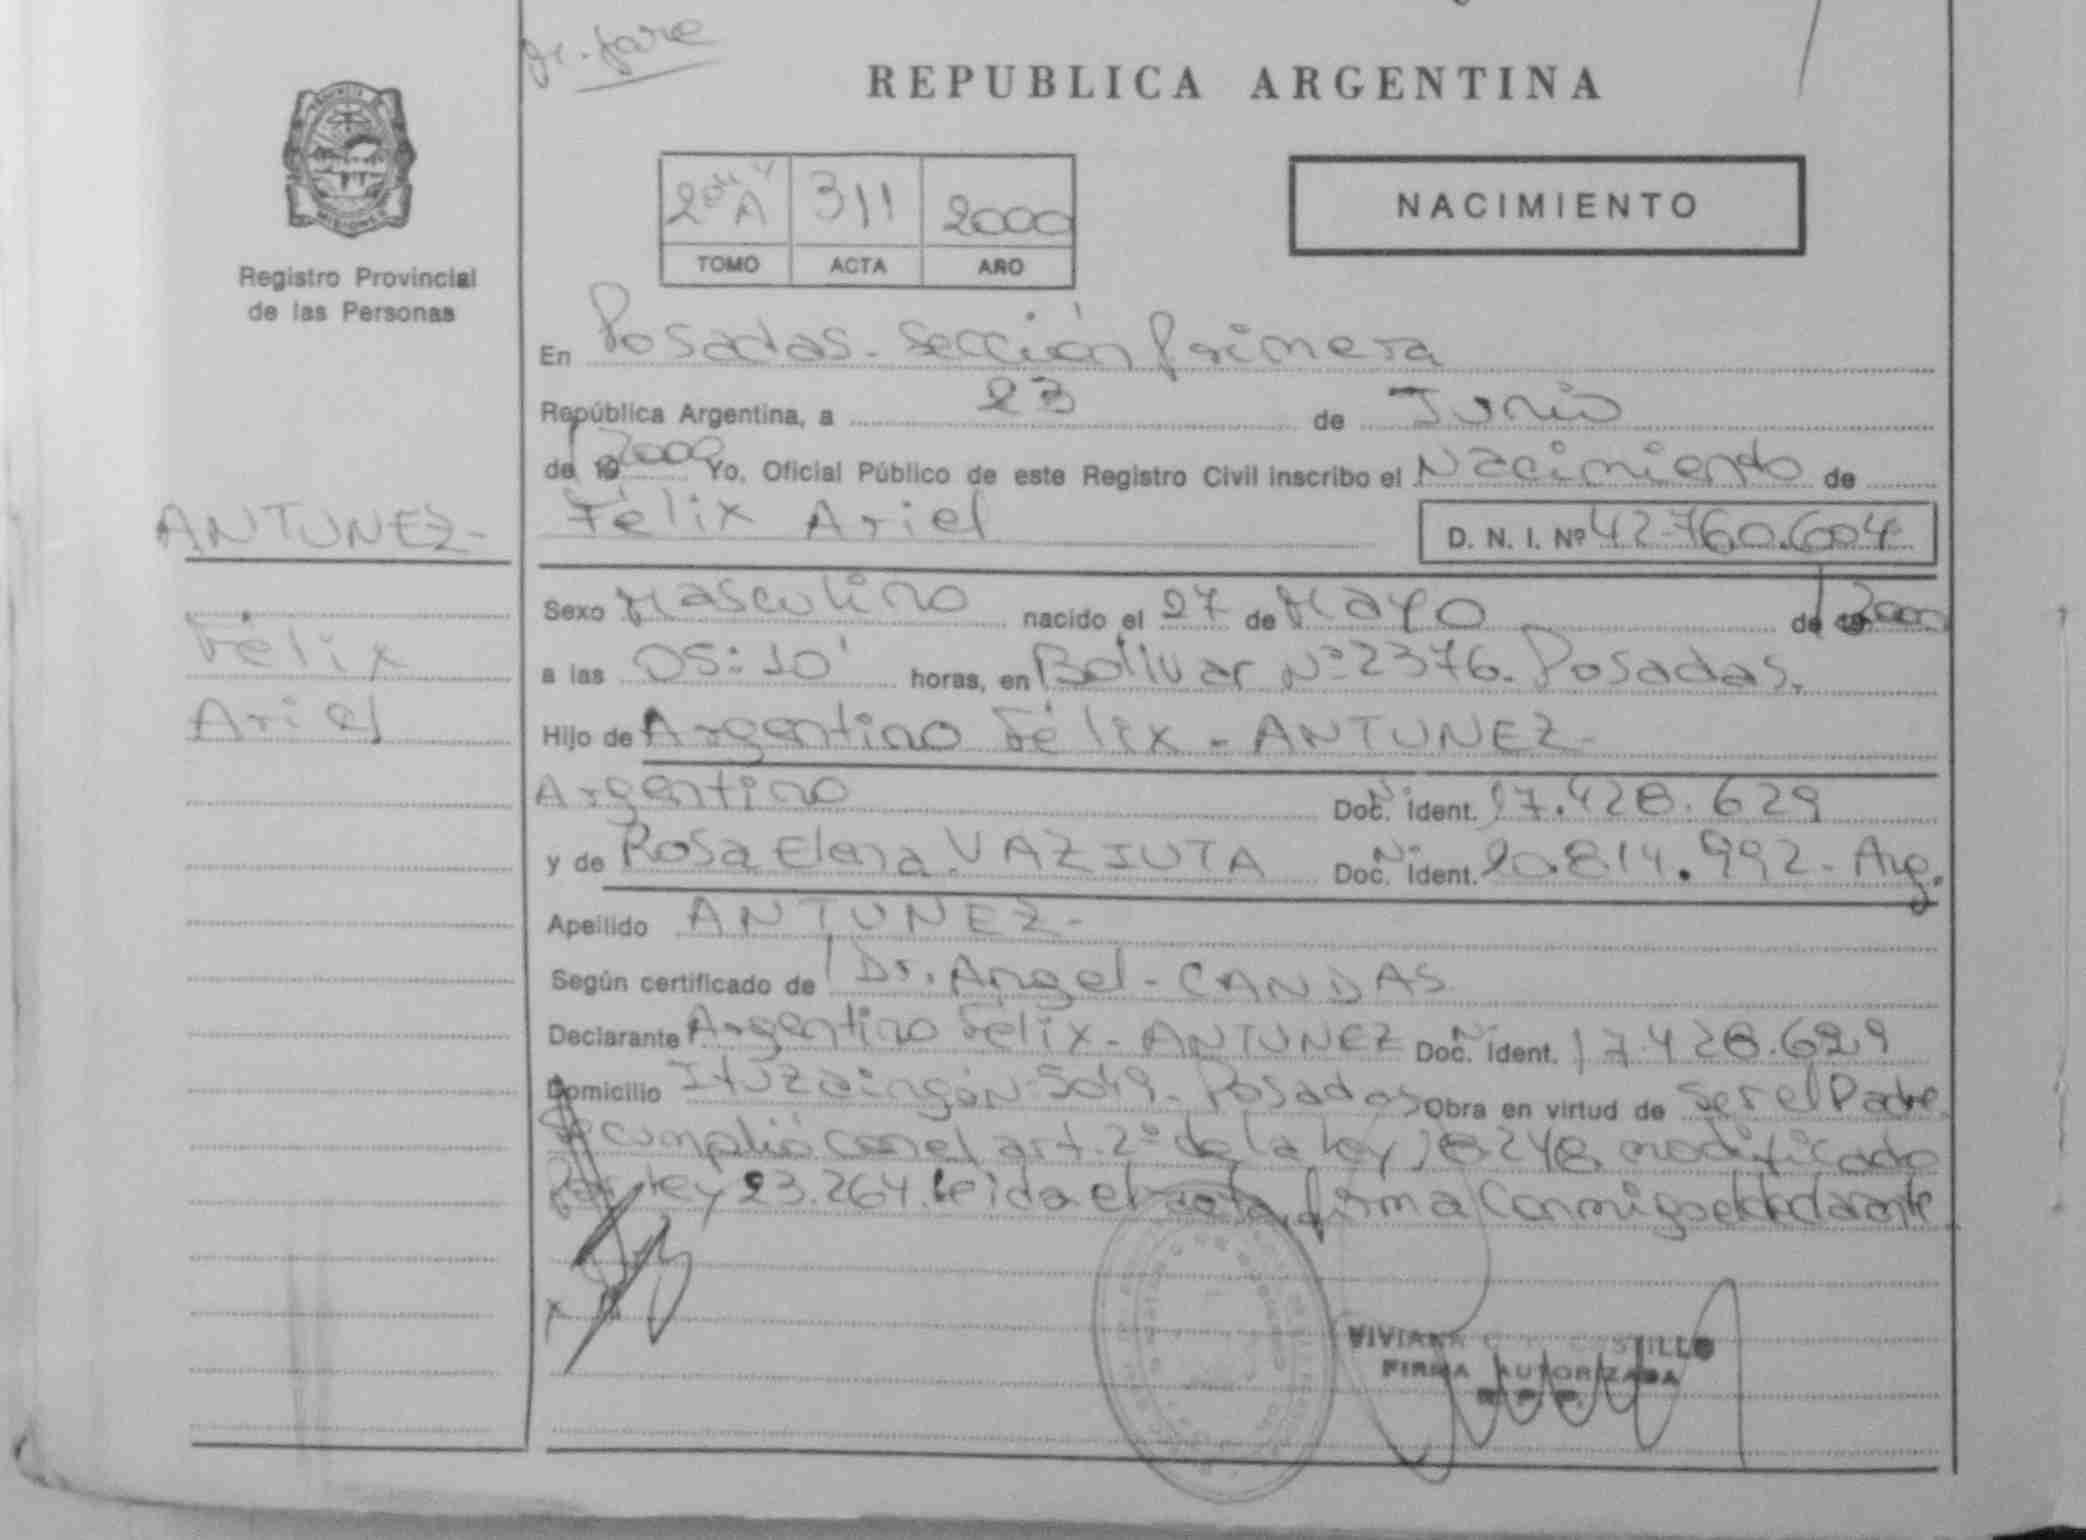 REPUBLICA ARGENTINA
Registro Provincial
de las Personas
311 2000
TOMO ACTA AÑO
NACIMIENTO
En Posadas - Sección Primera
República Argentina, a 23 de Junio
de 19 2000 Yo, Oficial Público de este Registro Civil inscribo el Nacimiento de
Félix Ariel D. N. I. Nº 42.760.604
ANTUNEZ-
Félix
Ariel
Sexo Masculino nacido el 27 de Mayo de 19 2000
a las 05:10' horas, en Bolívar Nº 2376. Posadas.
Hijo de Argentino Félix - ANTUNEZ-
Argentino Doc. N. Ident. 17.428.629
y de Rosa Elena VAZIUTA Doc. N. Ident. 20.814.992- Arg.
Apellido ANTUNEZ-
Según certificado de Dr. Angel - CANDAS
Declarante Argentino Félix - ANTUNEZ Doc. N. Ident. 17.428.629
Domicilio Ituzaingón 5049 - Posadas Obra en virtud de ser el Padre
Se cumplió con el art. 2º de la Ley 18.248 modificado
Por Ley 23.264. Leida el acta, firma Conmigo el declarante
VIVIANA CASTILLO
FIRMA AUTORIZADA
R. P. P.